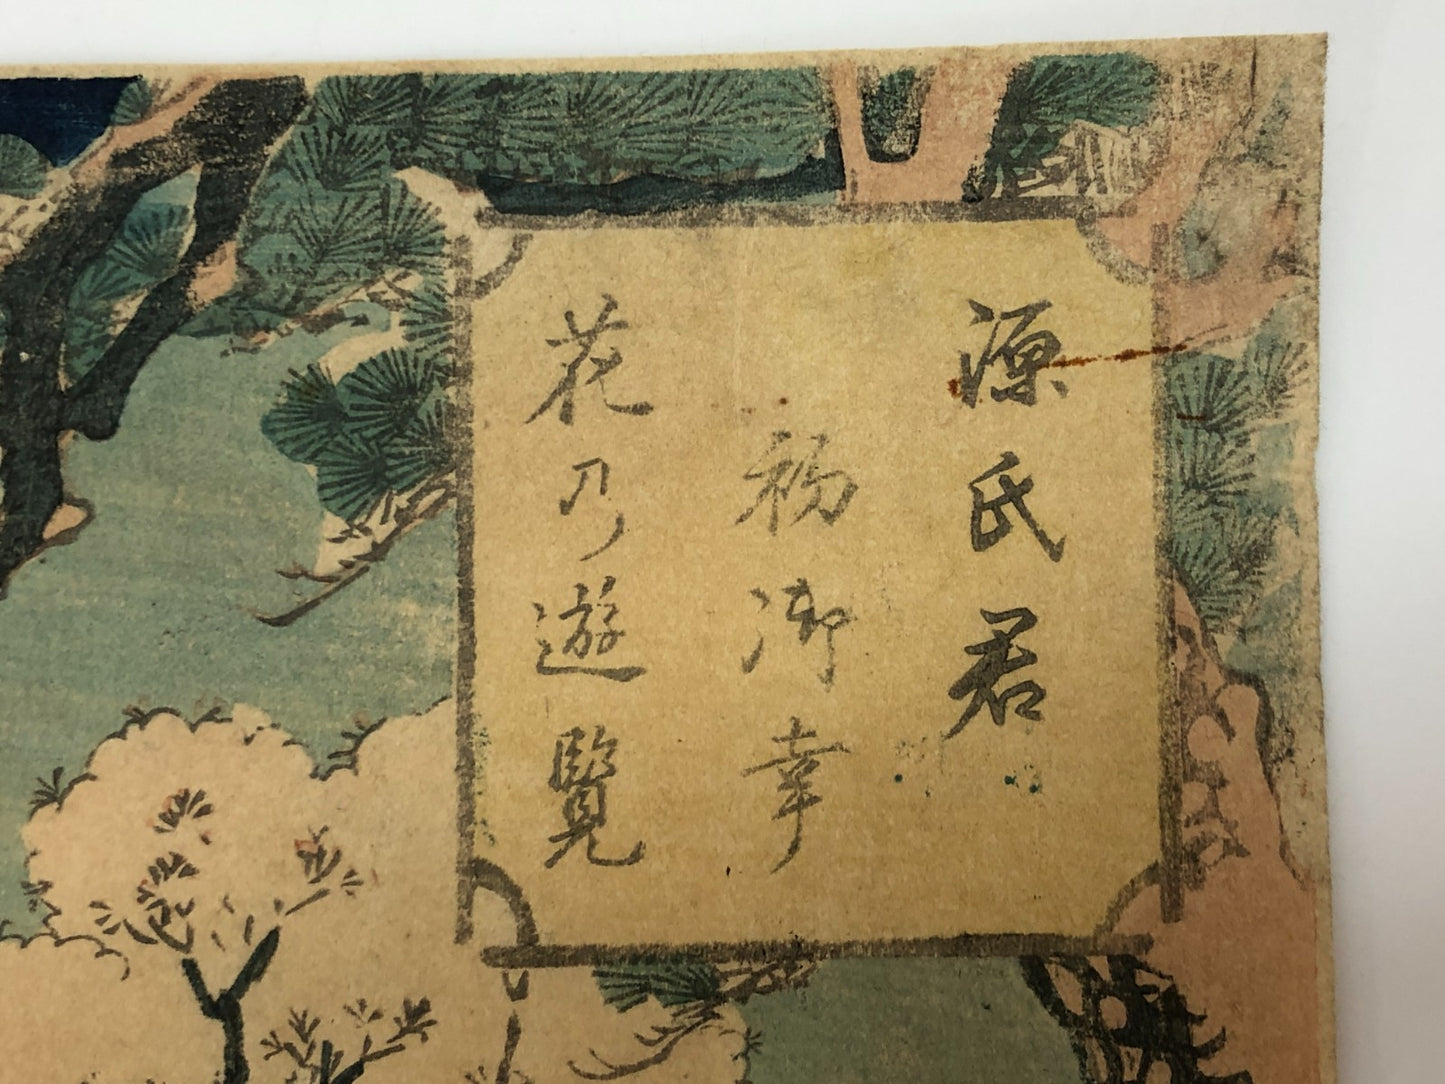 源氏君
初御幸
花乃遊覧